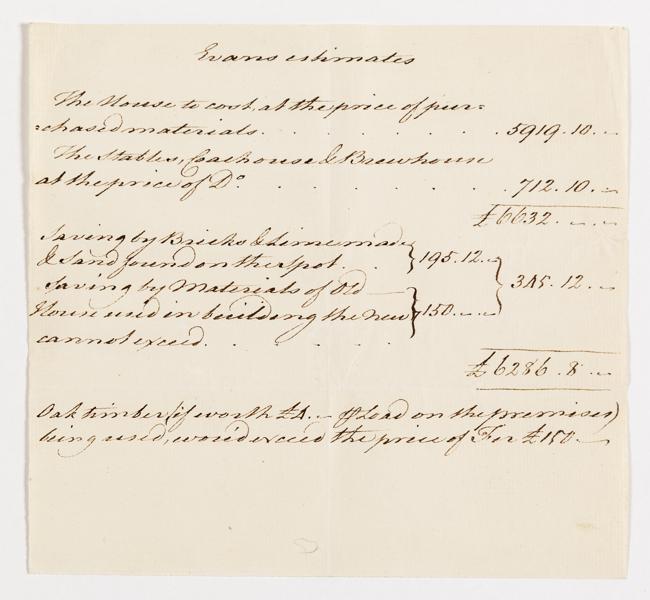 Evans estimates
The House to cost, at the price of pur=
=chased materials. . . . . . . . 5919.10.~
The Stables, Coachouse & Brewhouse
at the price of Do. . . . . . . . 712.10.~
£6632.~.~
Saving by Bricks & Lime made
& Sand found on the spot. . } 195.12.~
Saving by Materials of Old
House used in building the New } 150.~.~ } 345.12.~
cannot exceed. . . . . .
£6286.8.~
Oak timber (if worth £4.~ ⅌ Load on the premises)
being used, would exceed the price of Fir £150.~